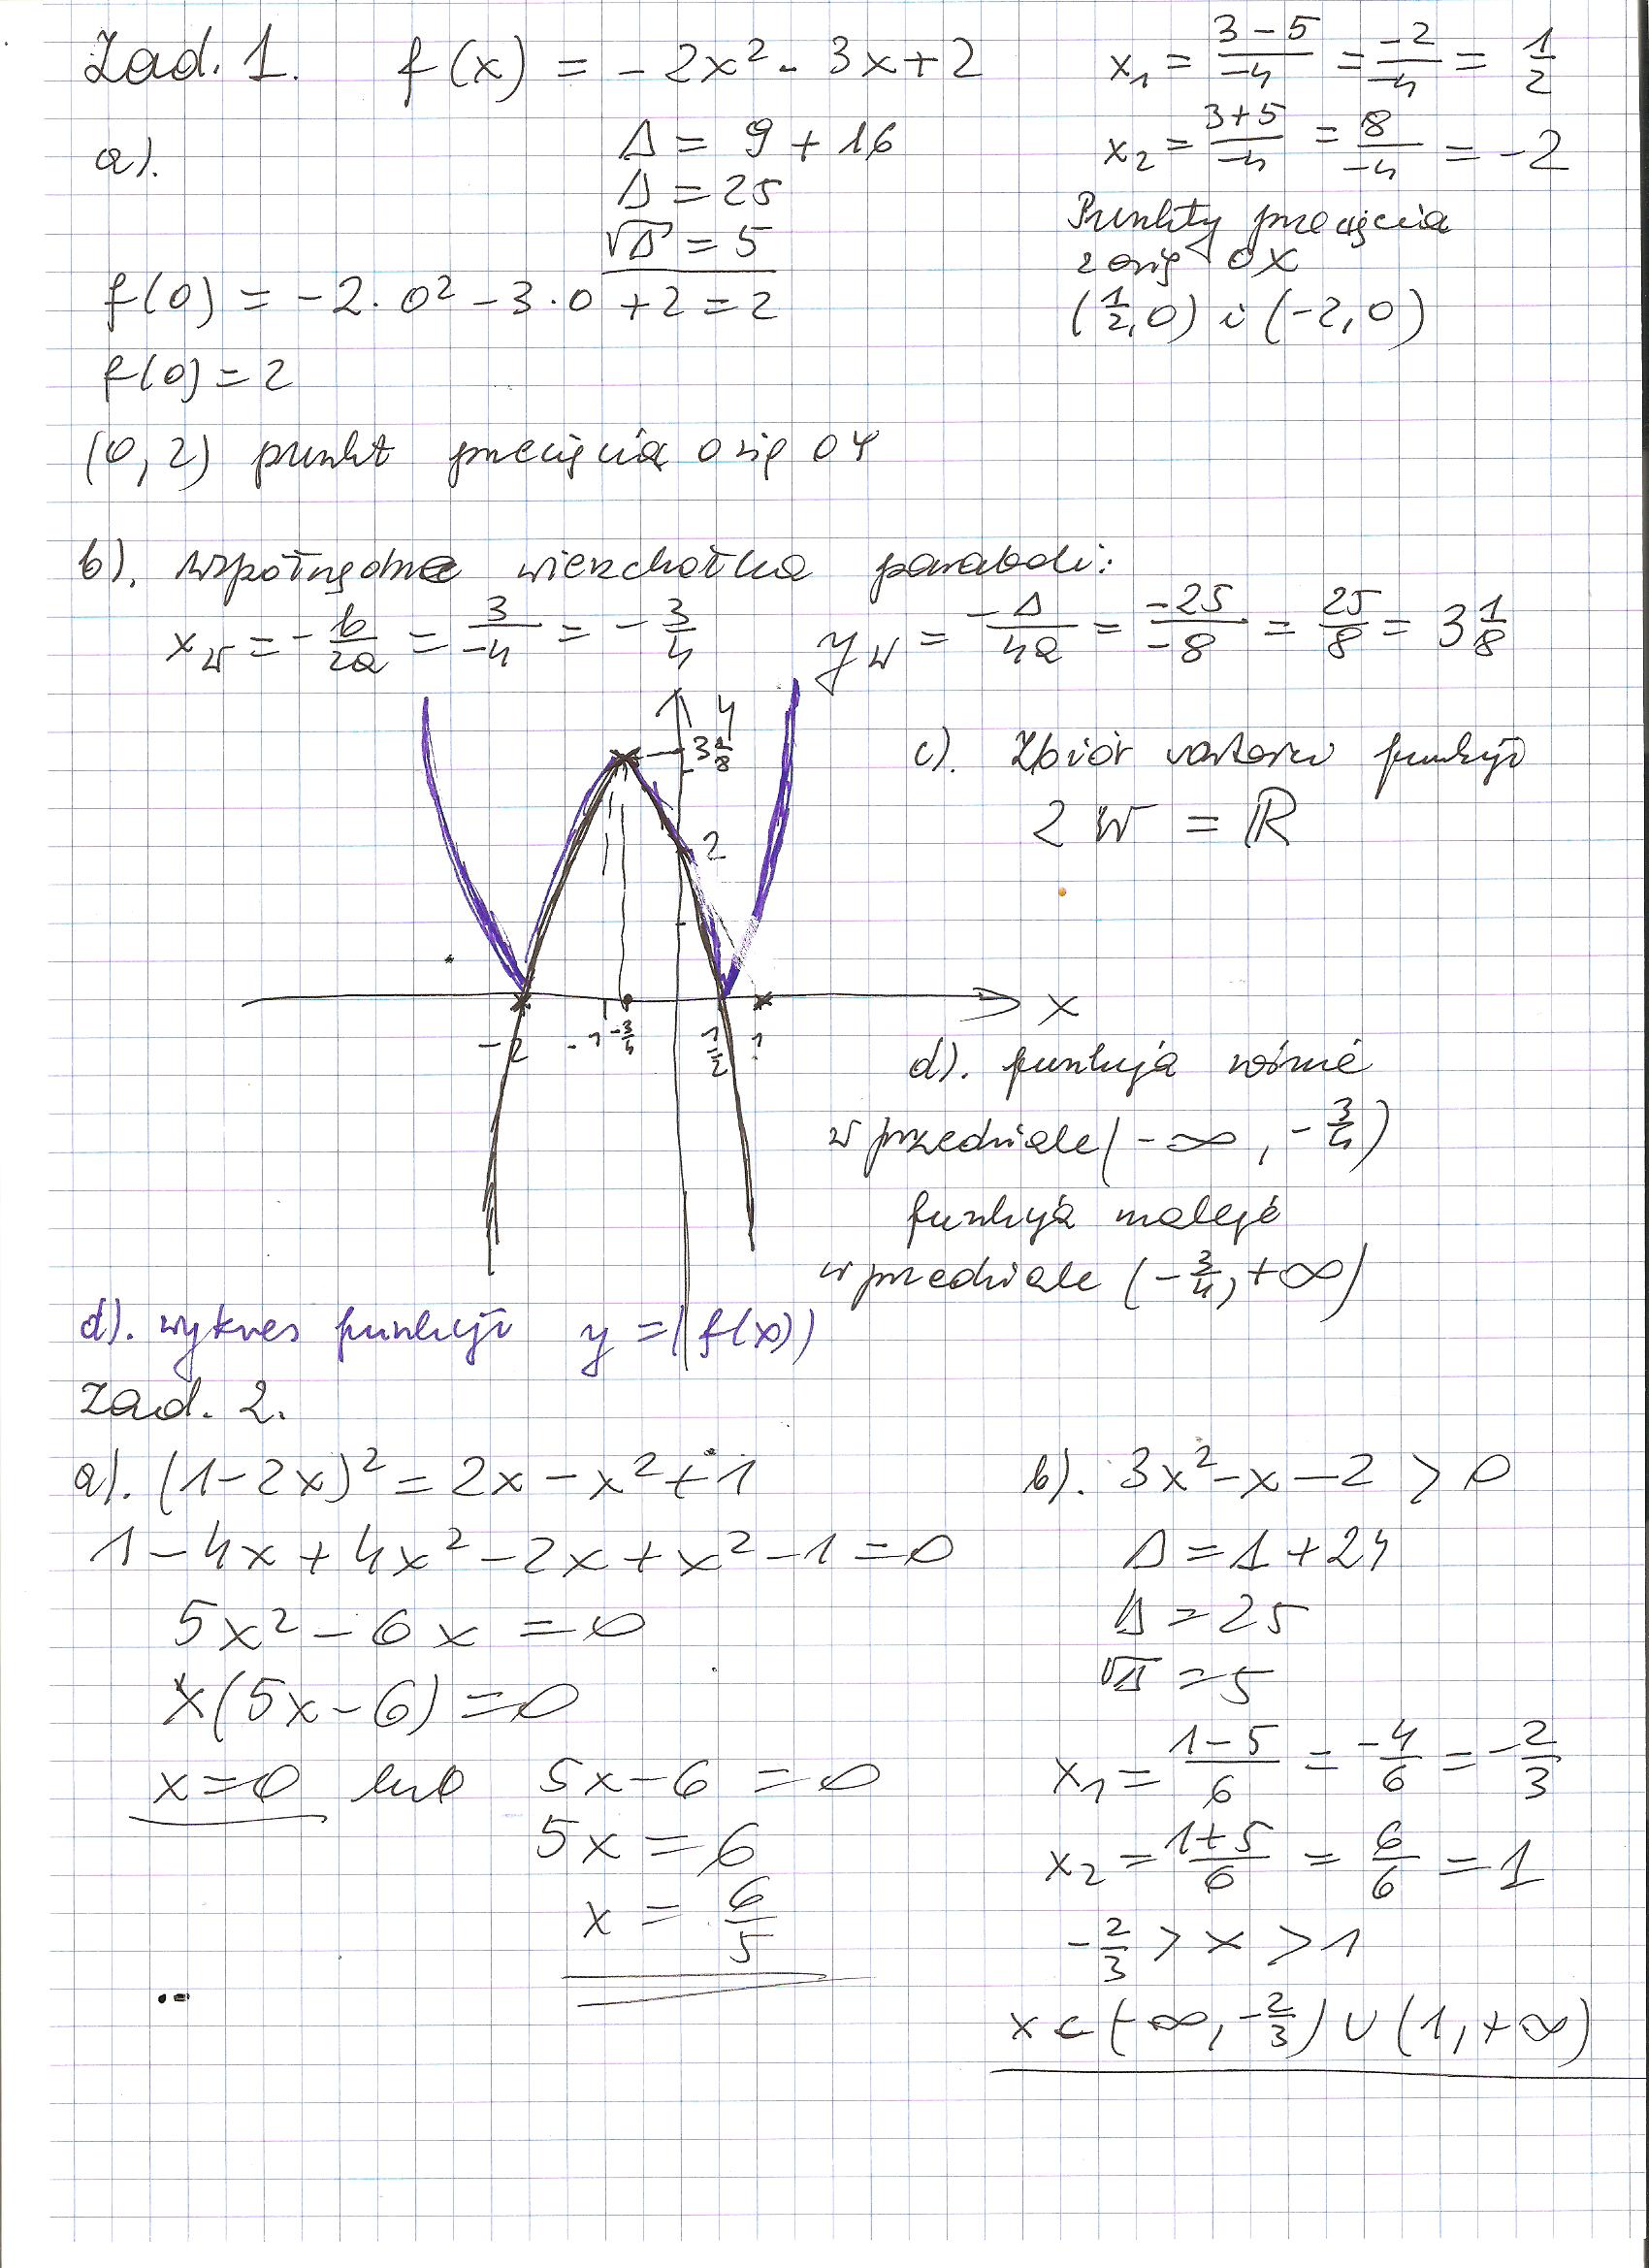 Zad. 1. f(x) = -2x² - 3x + 2
a).
Δ = 9 + 16
Δ = 25
√Δ = 5
x₁ = (3-5)/-4 = -2/-4 = 1/2
x₂ = (3+5)/-4 = 8/-4 = -2
Punkty przecięcia
z osią OX
(1/2, 0) i (-2, 0)
f(0) = -2·0² - 3·0 + 2 = 2
f(0) = 2
(0, 2) punkt przecięcia osią OY
b). współrzędne wierzchołka paraboli:
x_w = -b/2a = 3/-4 = -3/4
y_w = -Δ/4a = -25/-8 = 25/8 = 3 1/8
y
3 1/8
2
x
-2 -1 -3/4 1/2 1
c). Zbiór wartości funkcji
ZW = ℝ
d). funkcja rośnie
w przedziale (-∞, -3/4)
funkcja maleje
w przedziale (-3/4, +∞)
d). wykres funkcji y = |f(x)|
Zad. 2.
a). (1-2x)² = 2x - x² + 1
1 - 4x + 4x² - 2x + x² - 1 = 0
5x² - 6x = 0
x(5x-6) = 0
x = 0 lub 5x - 6 = 0
5x = 6
x = 6/5
b). 3x² - x - 2 > 0
Δ = 1 + 24
Δ = 25
√Δ = 5
x₁ = (1-5)/6 = -4/6 = -2/3
x₂ = (1+5)/6 = 6/6 = 1
-2/3 > x > 1
x ∈ (-∞, -2/3) ∪ (1, +∞)